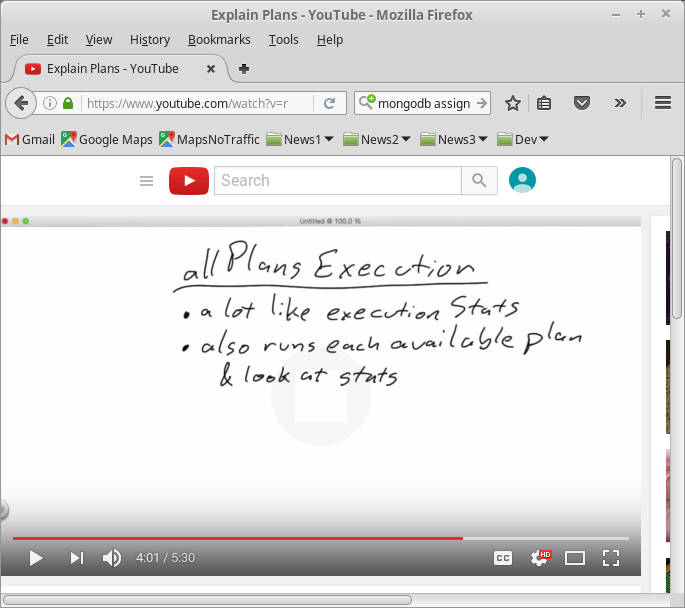 Explain Plans - YouTube - Mozilla Firefox
File Edit View History Bookmarks Tools Help
Explain Plans - YouTube
https://www.youtube.com/watch?v=r
mongodb assign
Gmail Google Maps MapsNoTraffic News1 News2 News3 Dev
Search
Untitled @ 100.0 %
all Plans Execution
• a lot like execution Stats
• also runs each available plan
& look at stats
4:01 / 5:30 CC HD